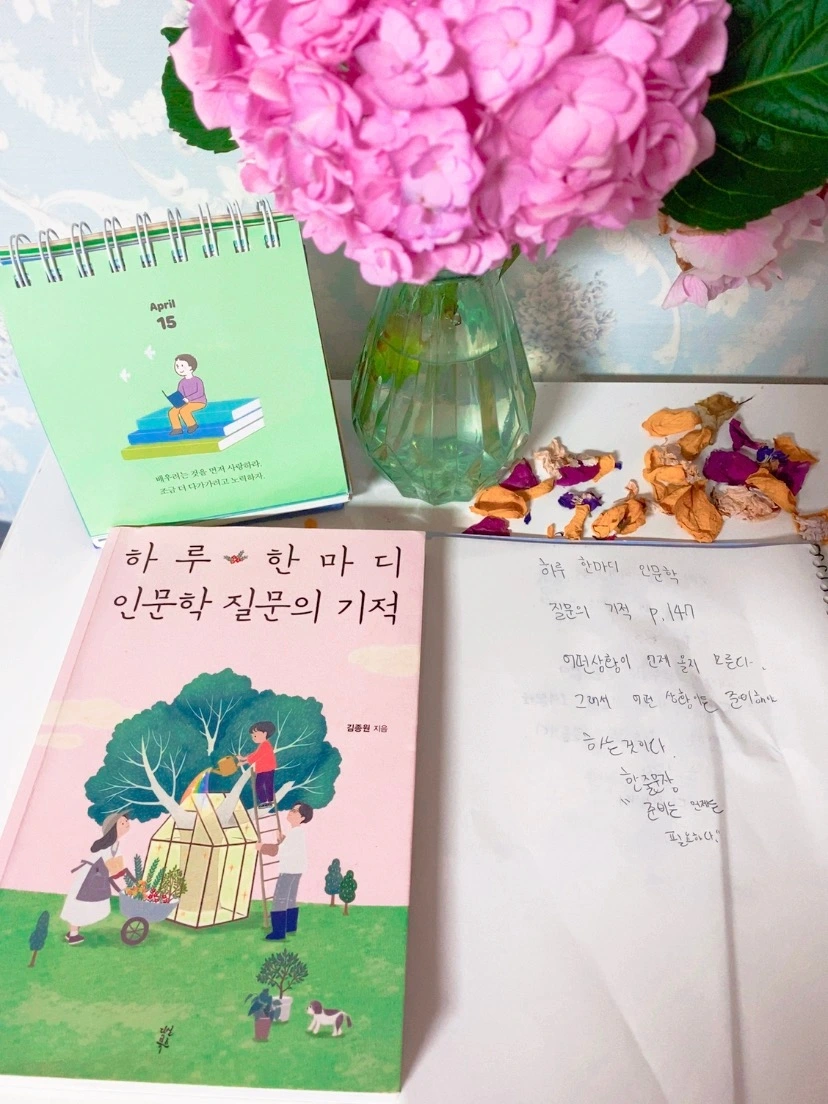 April
15
배우려는 것을 먼저 사랑하라.
조금 더 다가가려고 노력하자.
하루 한마디
인문학 질문의 기적
김종원 지음
하루 한마디 인문학
질문의 기적 p.147
어떤상황이 언제 올지 모른다.
그래서 어떤 상황이든 준비해야
하는것이다.
한줄문장
"준비는 언제든
필요하다."